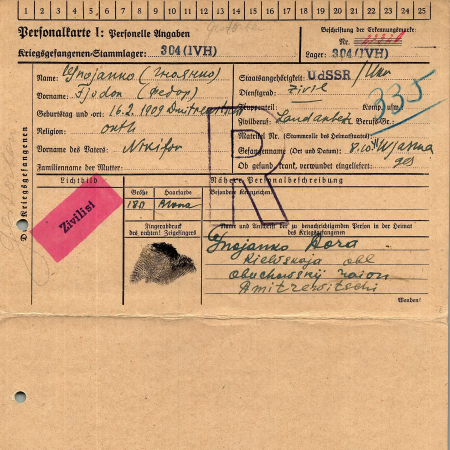 1 2 3 4 5 6 7 8 9 10 11 12 13 14 15 16 17 18 19 20 21 22 23 24 25
Personalkarte I: Personelle Angaben
Beschriftung der Erkennungsmarke
Kriegsgefangenen-Stammlager: 304 (IVH)
Nr.
Lager: 304 (IVH)
Des Kriegsgefangenen
Name: Gnojanko (Гноянко)
Staatsangehörigkeit: UdSSR /
Vorname: Fjodor (Федор)
Dienstgrad: Zivil
335
Geburtstag und -ort: 16.2.1909
Truppenteil: Komp. usw.:
Religion: orth
Zivilberuf: Landarbeit Berufs-Gr.:
Matrikel Nr. (Stammrolle des Heimatstaates):
Vorname des Vaters: Nikifor
Gefangennahme (Ort und Datum): 8.10.41 Wjasma
Familienname der Mutter:
Ob gesund, krank, verwundet eingeliefert: ges
R
Lichtbild
Nähere Personalbeschreibung
Größe
Haarfarbe
Besondere Kennzeichen:
180
Zivilist
Fingerabdruck
des rechten! Zeigefingers
Name und Anschrift der zu benachrichtigenden Person in der Heimat
des Kriegsgefangenen
Gnojanko Dora
Kiewskaja obl
Obuchowskij raion
Dmitrewitschi
Wenden!